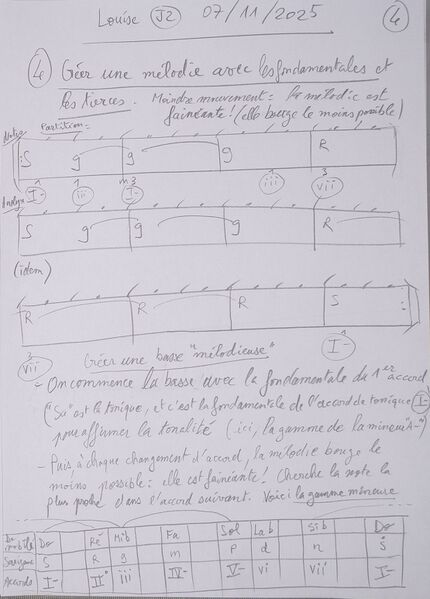 Louise J2 07/11/2025 4
4 Gérer une mélodie avec les fondamentales et
les tierces. Moindre mouvement = la mélodie est
fainéante ! (elle bouge le moins possible)
Partition =
S g g g R
I- ii I- iii vii
Analyse
S g g g R
(idem)
R R R S
vii I-
Créer une basse "mélodieuse"
- On commence la basse avec la fondamentale du 1er accord
("Sa" est la tonique, et c'est la fondamentale de l'accord de tonique I-
pour affirmer la tonalité (ici, la gamme de la mineur "A-")
- Puis à chaque changement d'accord, la mélodie bouge le
moins possible : elle est fainéante ! Cherche la note la
plus proche dans l'accord suivant. Voici la gamme mineure
Do mobile Do Ré Mib Fa Sol Lab Sib Do
Sargam S R g m P d n S
Accords I- II° iii IV- V- vi vii I-